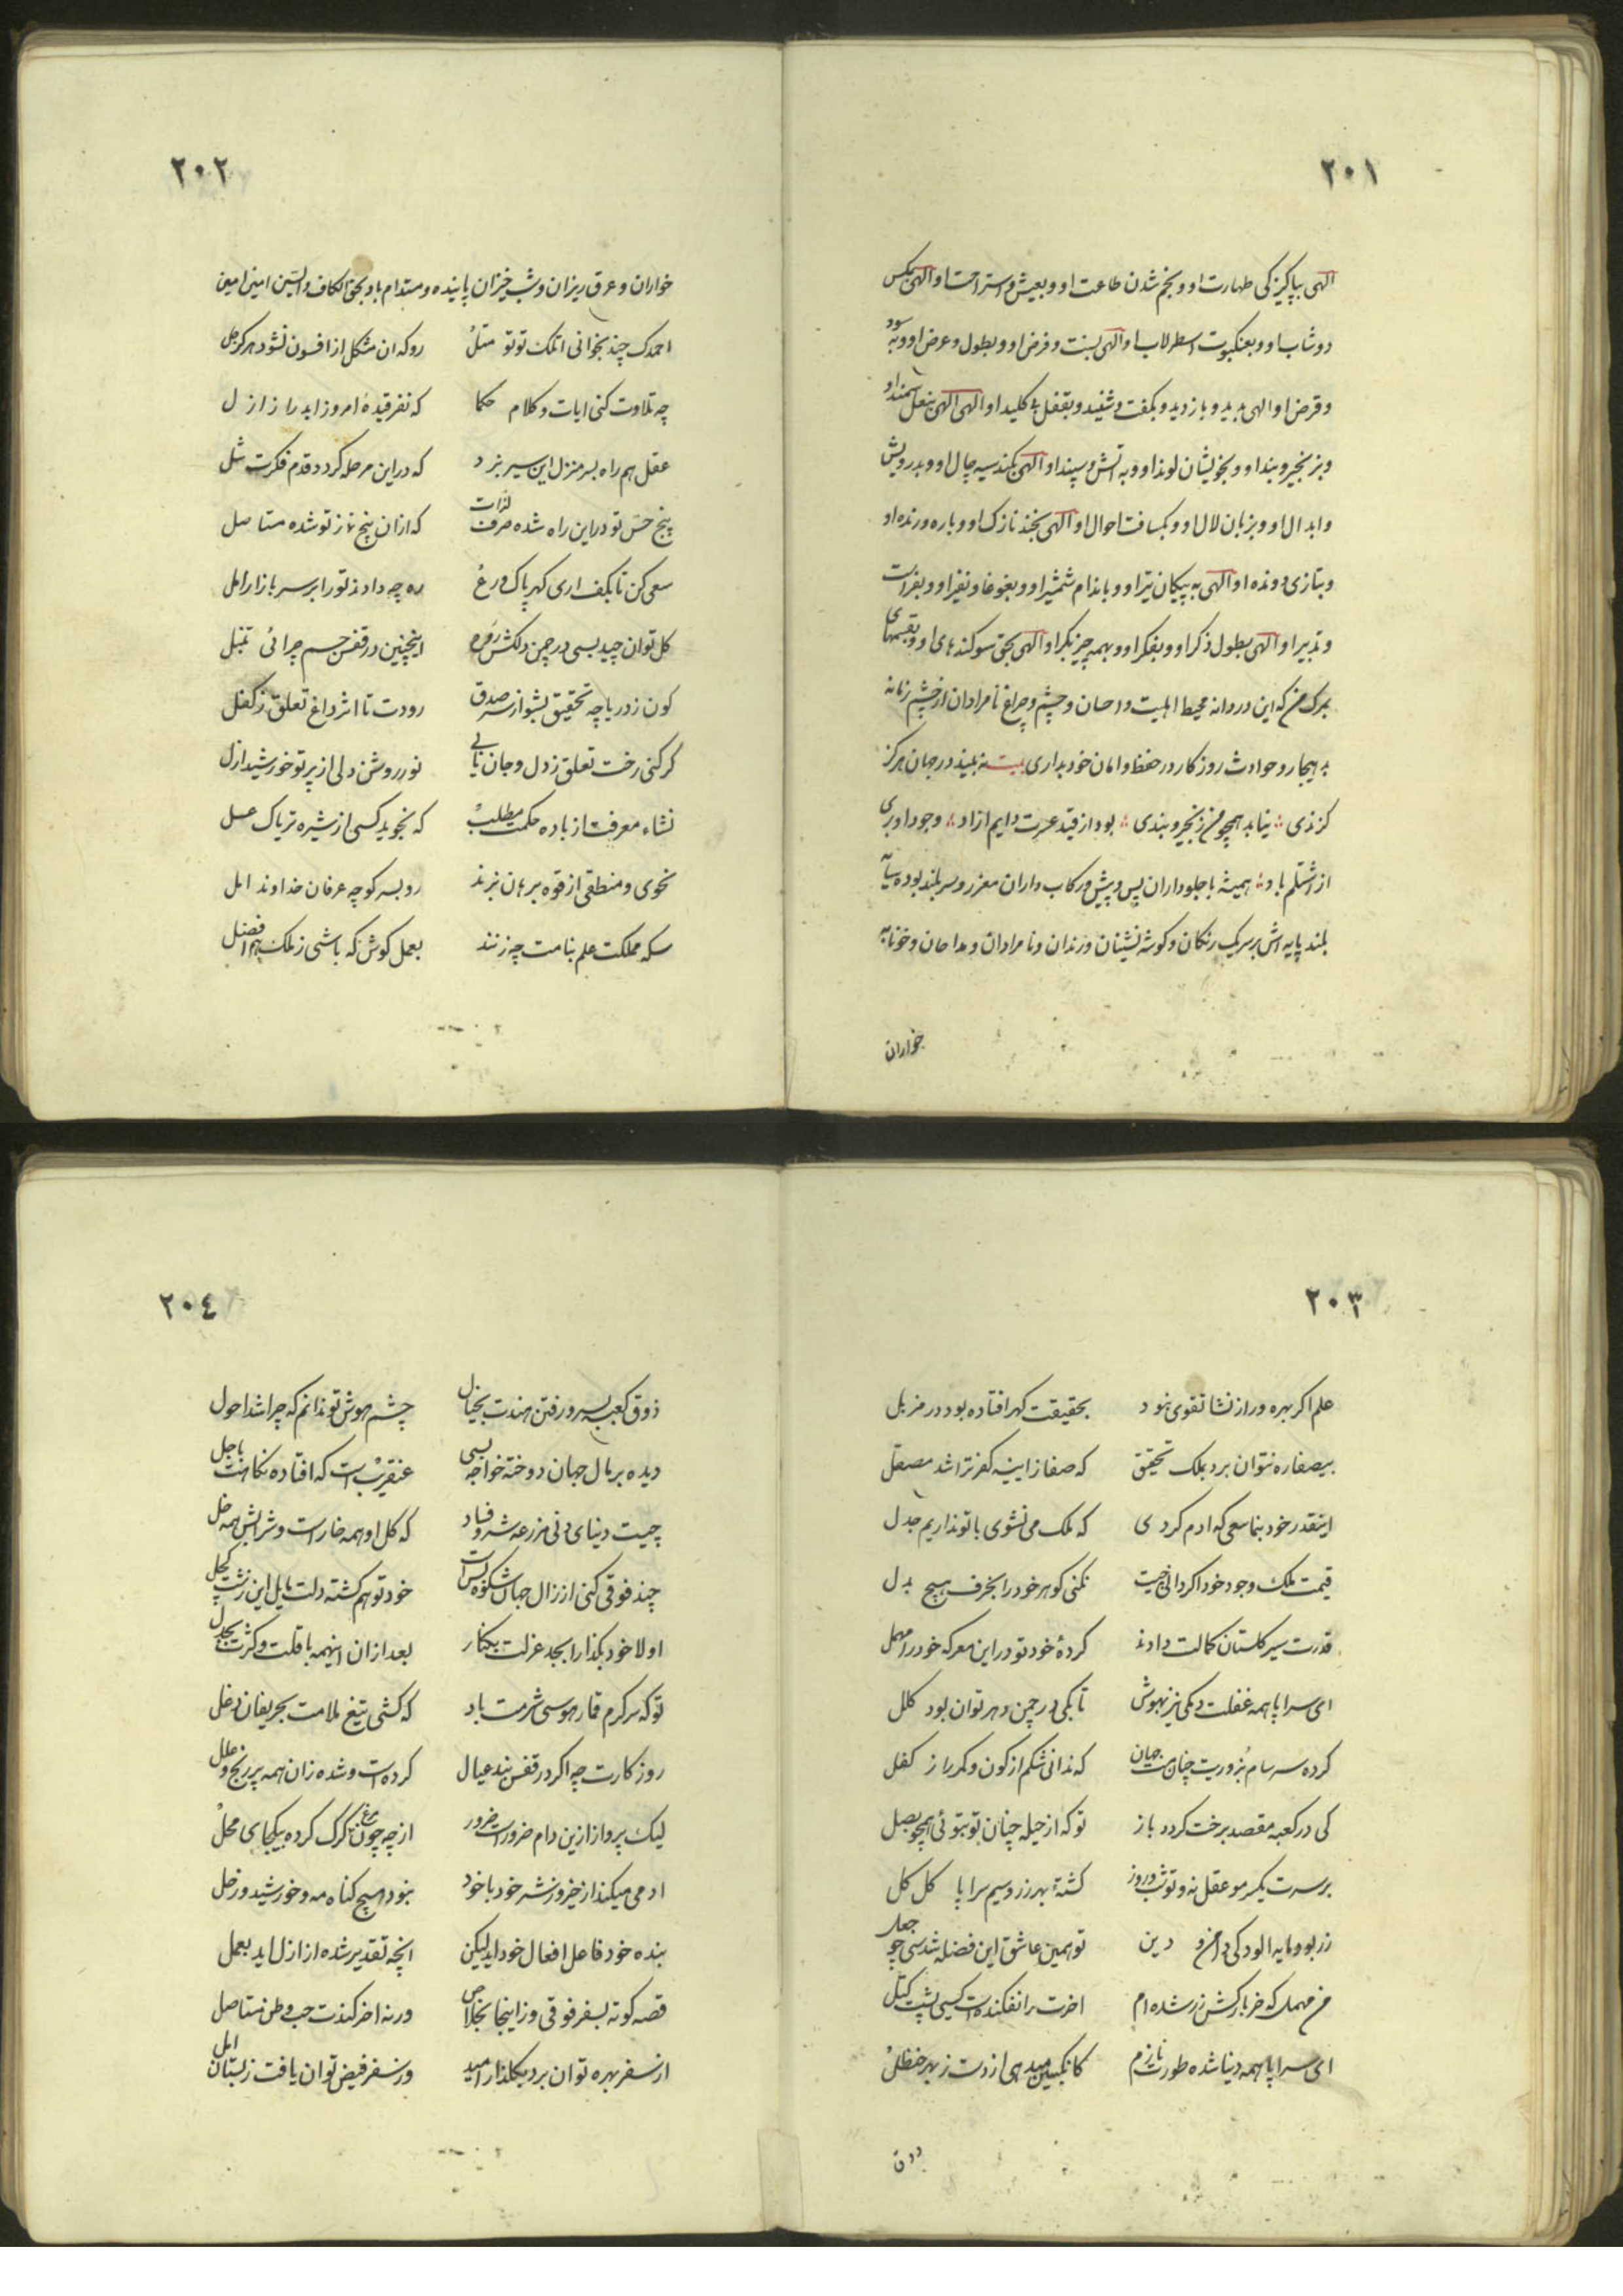 ٢٠١
الهی بپاکیزکی طهارت او و بخم شدن طاعت او و بعیش و استراحت او الهی بمکس
دوشاب او و بعنکبوت اسطرلاب او الهی بسنت و فرض او و بطول و عرض او و به سود
و قرض او الهی بدید و بازدید و بکفت و شنید و بقفل بی کلید او الهی الهی بنعل سمند او
و بزنجیر و بند او و بخویشان لوند او و به اتش و سپند او الهی بکند سیه چال او و بدرویش
و ابدال او و بزبان لال او و بکسافت احوال او الهی بخند نازک او و باره ورنده او
و بتازی دونده او الهی به پیکان تیر او و باندام شمشیر او و بغوغا و نفیر او و بفراست
و تدبیر او الهی بطول ذکر او و بفکر او و بهمه چیز بکر او الهی بحق سوکندهای او و بقسمهای
بمرک من که این دردانه محیط اهلیت و احسان و چشم و چراغ نامرادان از چشم زمانه
بهیجار و حوادث روزکار در حفظ و امان خود بداری بیت نه بیند در جهان هرکز
کزندی نیابد همچو من زنجیر و بندی بود از قید عسرت دایم ازاد وجود او بری
از اشتلم باد همیشه با جلوداران پس و پیش و رکاب داران معزز و سربلند بوده سایه
بلند پایه اش بر سر یک رنکان و کوشه نشینان و رندان و نامرادان و مداحان و خونابه
خواران
٢٠٢
خواران و عرق ریزان و شب خیزان پاینده و مستدام باد بحق الکاف و السین امین امین
احمدک چند بخوانی اتمک توتو متل روکه ان مشکل از افسون نشود هرکز حل
چه تلاوت کنی ایات و کلام حکما که نفرقیده امروز ابد راز ازل
عقل هم راه بسر منزل این سیر نبرد که دراین مرحله کردد قدم فکرت شل
پنج حس تو دراین راه شده صرف لذات که ازان پنج نماز تو شده مستاصل
سعی کن تا بکف اری کهر پاک ورع ره چه دادند تو را بر سر بازار امل
کل توان چید بسی در چمن دلکش اینچنین در قفس جسم چرائی تنبل
کون ز دریاچه تحقیق بشو از سر صدق رودت تا اثر داغ تعلق ز کفل
کر کنی رخت تعلق ز دل و جان یابی نور روشن دلی از پرتو خورشید ازل
نشاء معرفت از باده حکمت مطلب که نجوید کسی از شیره تریاک عسل
نحوی و منطقی از قوه برهان نبرند رو بسر کوچه عرفان خداوند اجل
سکه مملکت علم بنامت چه زنند بعمل کوش که باشی ز ملک هم افضل
٢٠٣
علم اکر بهره ور از نشا تقوی نبود بحقیقت کهر افتاده بود در مزبل
بیصفا ره نتوان برد بملک تحقیق که صفا زاینه کفر تراشد مصقل
اینقدر خود بنما سعی که ادم کردی که ملک می نشوی با تو نداریم جدل
قیمت ملک وجود خود اکر دانی چیست نکنی کوهر خود را بخزف هیچ بدل
قدرت سیر کلستان کمالت دادند کردهٔ خود تو دراین معرکه خود را مهمل
ای سراپا همه غفلت دمکی نیز بهوش تا بکی در چمن دهر توان بود کلل
کرده سرسام بزوریت چنان حب جهان که ندانی شکم از کون و کمر را ز کفل
کی در کعبه مقصد برخت کردد باز تو که از حیله چنان تو بتوئی همچو بصل
بر سرت یکسر مو عقل نه و تو شب و روز کشتهٔ بهر زر و سیم سراپا کل کل
زر بود مایه الودکی دامن و دین تو همین عاشق این فضله شدی چو جعل
من مهمل که خر بارکش زر شده ام اخرت را نفکنده است کسی پشت کتل
ای سراپا همه دنیا شده طورت نازم کانکبین میدهی از دست ز بهر حنظل
٢٠٤
ذوق کعبه بسر و رفتن هندت بخیال چشم هوش تو ندانم که چرا شد احول
دیده بر مال جهان دوخته خواجه بسی عنقریب است که افتاده نکاهت باجل
چیست دنیای دنی مزرعه شر و فساد که کل او همه خار است و شرابش همه خل
چند فوقی کنی از زال جهان شکوه خود تو هم کشته دلت مایل این زشت کچل
اولا خود بکذار ابجد عزلت بکنار بعد ازان اینهمه با قلت و کثرت بجدل
تو که سرکرم قمار هوسی شرمت باد که کشی تیغ ملامت بحریفان دغل
روزکارت چه اکر در قفس بند عیال کرده است و شده زان همه پر رنج و علل
لیک پرواز ازین دام ضرور است ضرور از چه چون مرغ کرک کرده بیکجای محل
ادمی میکند از خیر و ز شر خود با خود نبود هیچ کناه مه و خورشید و زحل
بنده خود فاعل افعال خود اید لیکن انچه تقدیر شده از ازل اید بعمل
قصه کوته بسفر فوقی و زاینجا بخلاص ورنه اخر کندت حب وطن مستاصل
از سفر بهره توان برد بکلزار امید وز سفر فیض توان یافت ز بستان امل